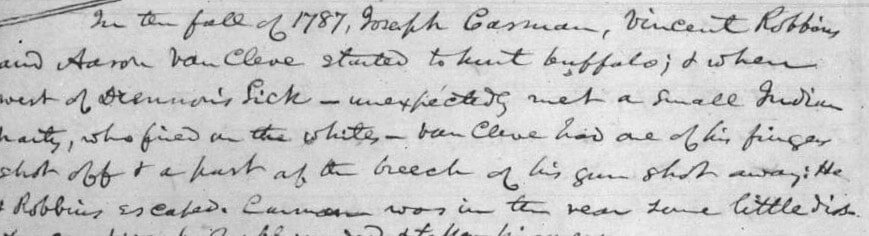 In the fall of 1787, Joseph Carman, Vincent Robbins
and Aaron Van Cleve started to hunt buffalo; & when
west of Drennon's Lick – unexpectedly met a small Indian
party, who fired on the whites – Van Cleve had one of his fingers
shot off & a part of the breech of his gun shot away: He
& Robbins escaped. Carman was in the rear some little dis-